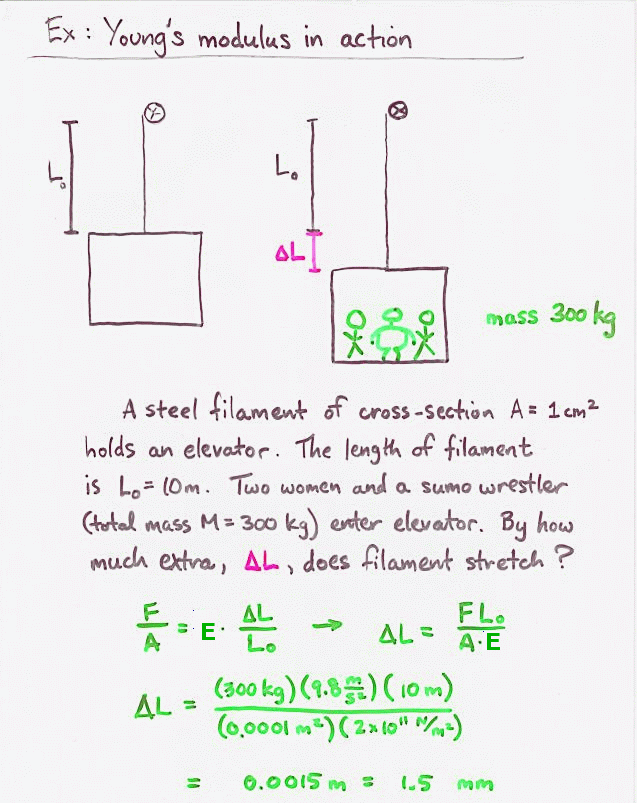 Ex: Young's modulus in action
L₀
L₀
ΔL
mass 300 kg
A steel filament of cross-section A = 1 cm²
holds an elevator. The length of filament
is L₀ = 10m. Two women and a sumo wrestler
(total mass M = 300 kg) enter elevator. By how
much extra, ΔL, does filament stretch?
F/A = E · ΔL/L₀ → ΔL = F L₀/A·E
ΔL = (300 kg)(9.8 m/s²)(10 m)/(0.0001 m²)(2×10¹¹ N/m²)
= 0.0015 m = 1.5 mm